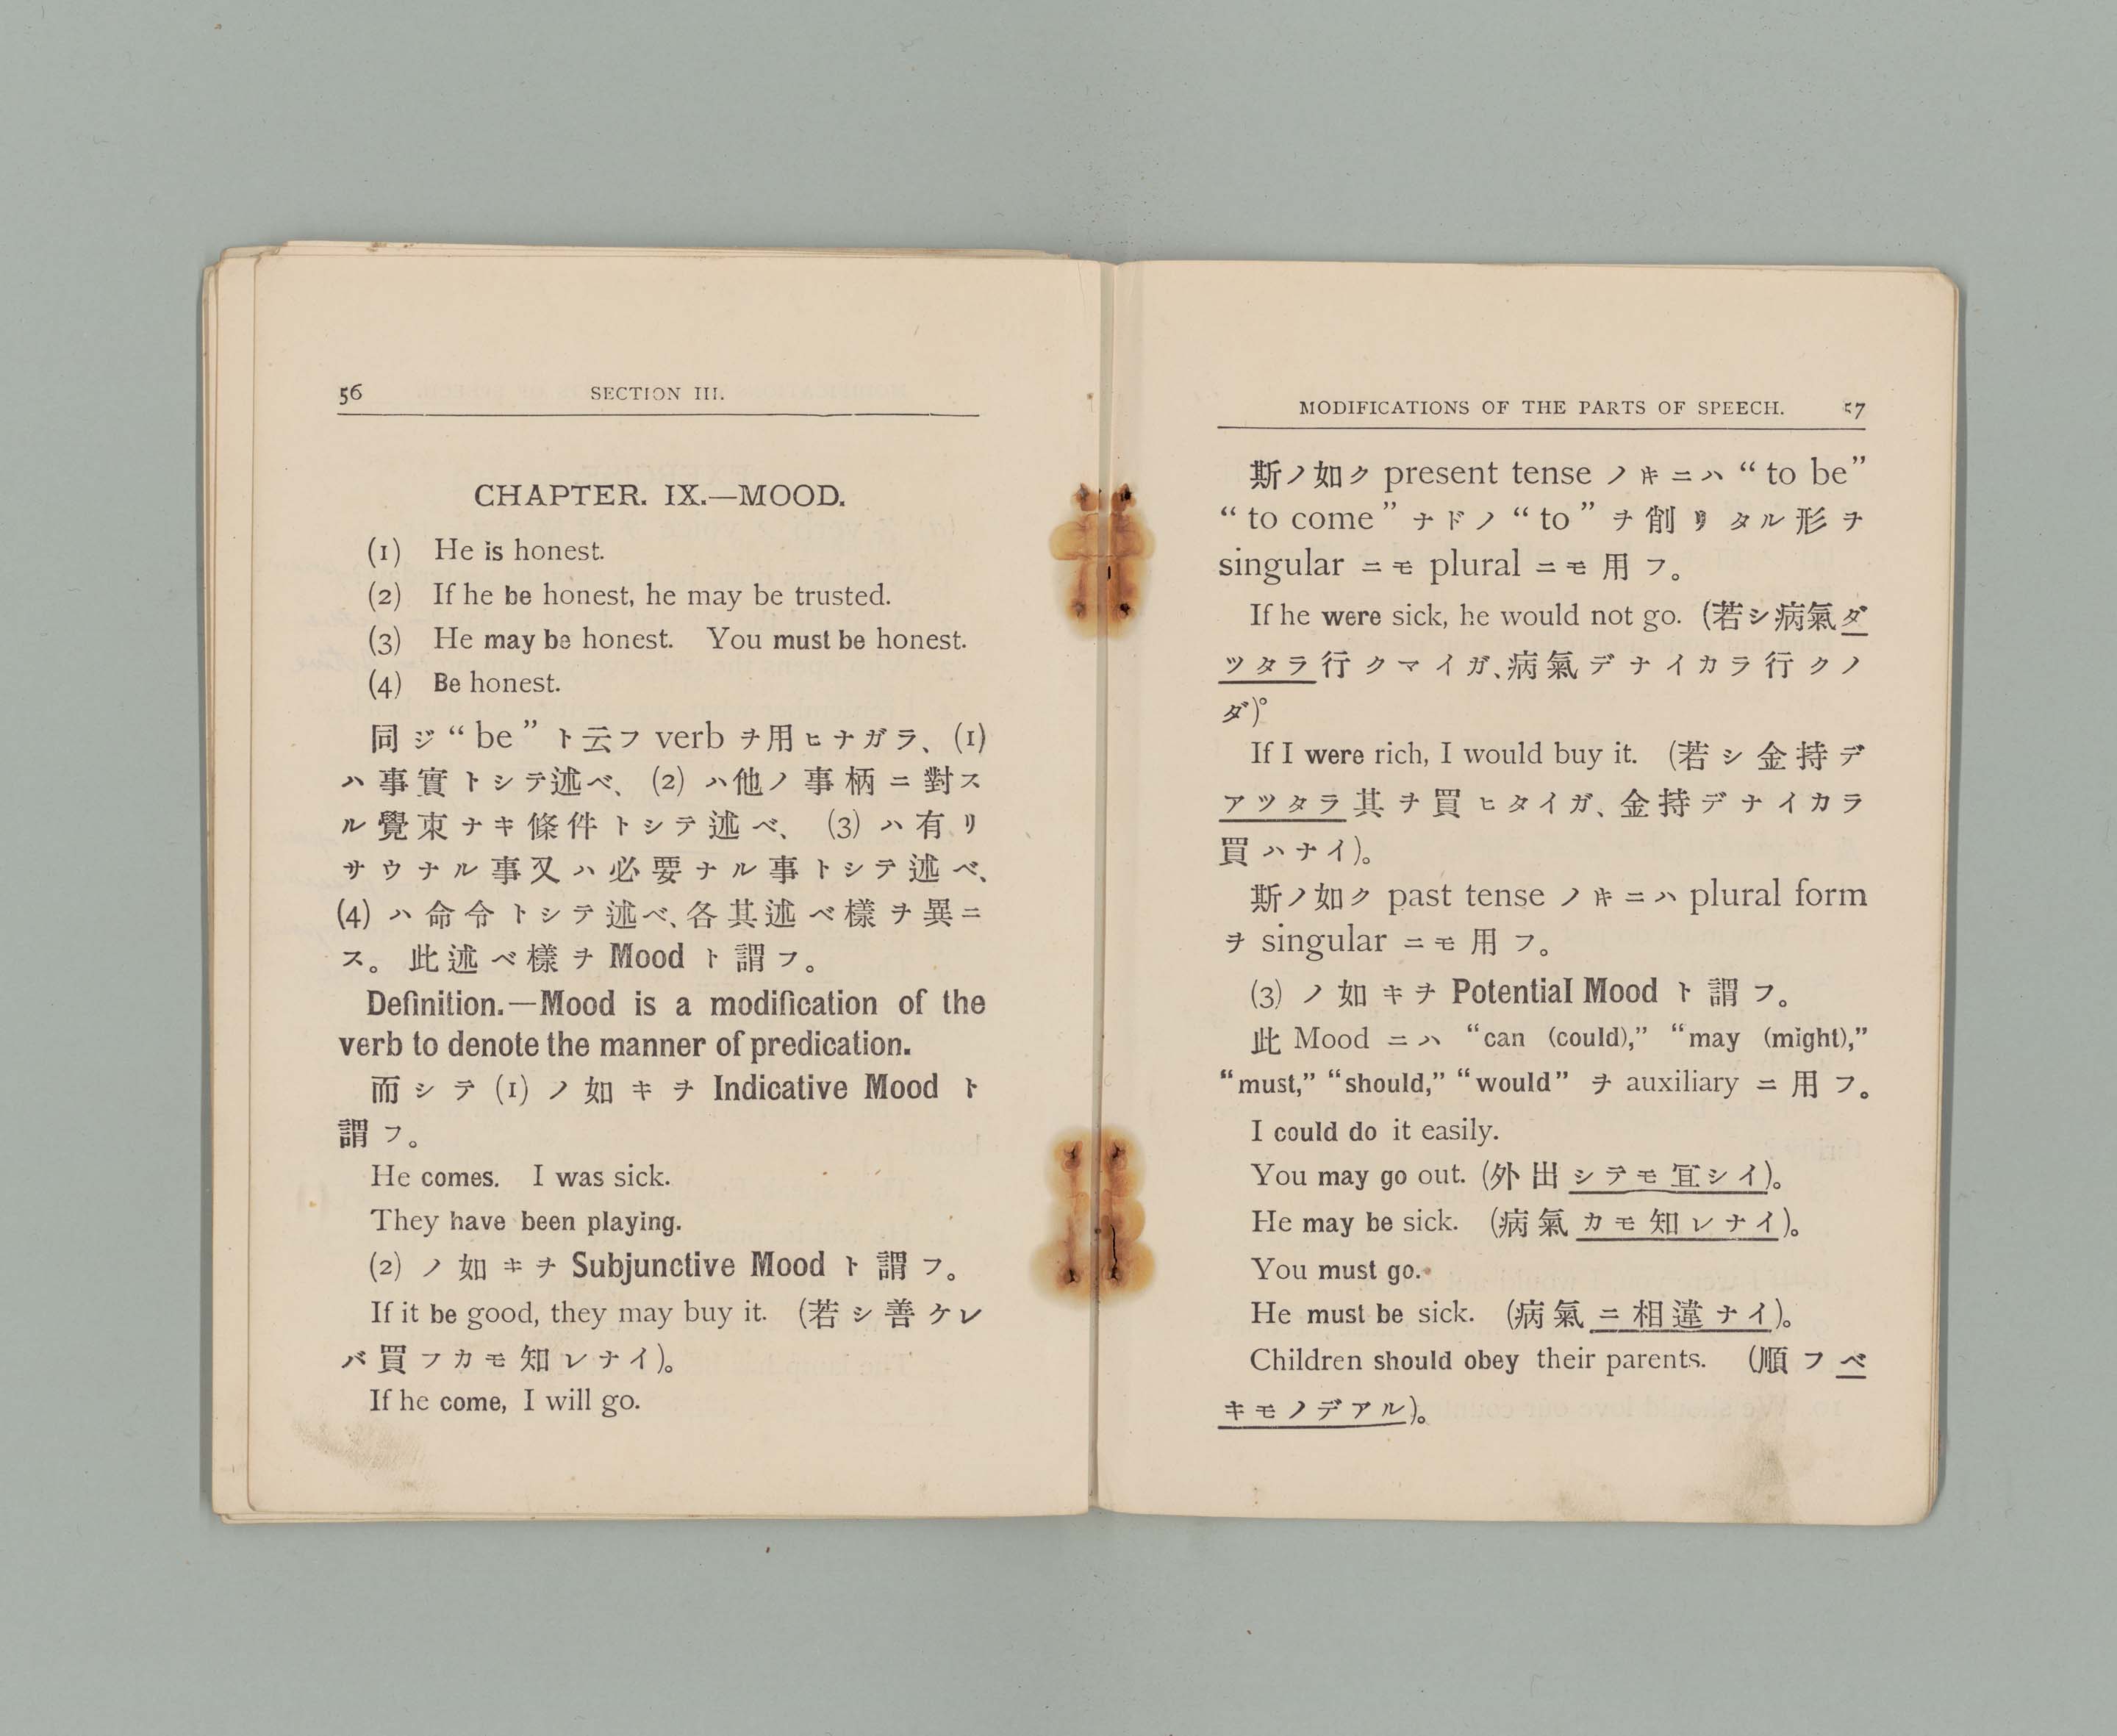 56 SECTION III.
CHAPTER. IX.—MOOD.
(1) He is honest.
(2) If he be honest, he may be trusted.
(3) He may be honest. You must be honest.
(4) Be honest.
同ジ “be” ト云フ verb ヲ用ヒナガラ、(1)
ハ事實トシテ述ベ、(2) ハ他ノ事柄ニ對ス
ル覺束ナキ條件トシテ述ベ、(3) ハ有リ
サウナル事又ハ必要ナル事トシテ述ベ、
(4) ハ命令トシテ述ベ、各其述ベ樣ヲ異ニ
ス。此述ベ樣ヲ Mood ト謂フ。
Definition.—Mood is a modification of the
verb to denote the manner of predication.
而シテ (1) ノ如キヲ Indicative Mood ト
謂フ。
He comes. I was sick.
They have been playing.
(2) ノ如キヲ Subjunctive Mood ト謂フ。
If it be good, they may buy it. (若シ善ケレ
バ買フカモ知レナイ)。
If he come, I will go.
MODIFICATIONS OF THE PARTS OF SPEECH. 57
斯ノ如ク present tense ノキニハ “to be”
“to come” ナドノ “to” ヲ削リタル形ヲ
singular ニモ plural ニモ用フ。
If he were sick, he would not go. (若シ病氣ダ
ツタラ行クマイガ、病氣デナイカラ行クノ
ダ)。
If I were rich, I would buy it. (若シ金持デ
アツタラ其ヲ買ヒタイガ、金持デナイカラ
買ハナイ)。
斯ノ如ク past tense ノキニハ plural form
ヲ singular ニモ用フ。
(3) ノ如キヲ Potential Mood ト謂フ。
此 Mood ニハ “can (could),” “may (might),”
“must,” “should,” “would” ヲ auxiliary ニ用フ。
I could do it easily.
You may go out. (外出シテモ宜シイ)。
He may be sick. (病氣カモ知レナイ)。
You must go.
He must be sick. (病氣ニ相違ナイ)。
Children should obey their parents. (順フベ
キモノデアル)。